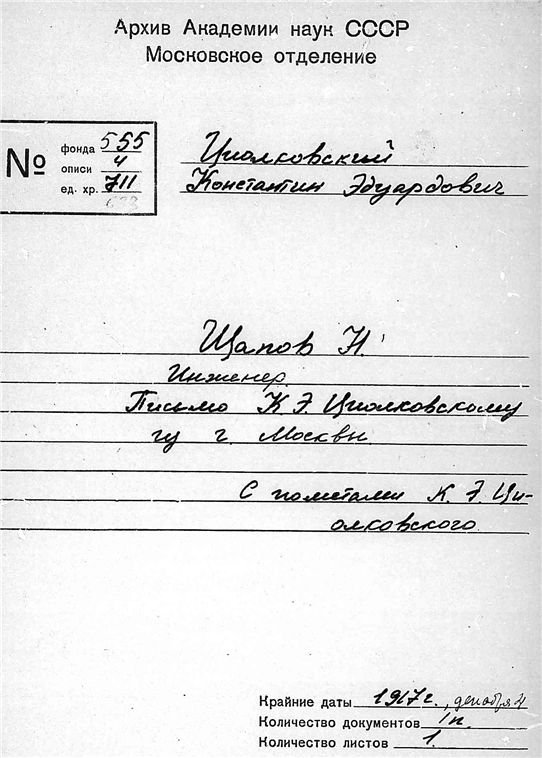 Архив Академии наук СССР
Московское отделение
№
фонда 555
описи 4
ед. хр. 711
633
Циолковский
Константин Эдуардович
Щапов Н.
Инженер.
Письмо К. Э. Циолковскому
г. Москвы
С пометами К. Э. Ци-
олковского.
Крайние даты 1917 г., декабря 4
Количество документов 1 п.
Количество листов 1.